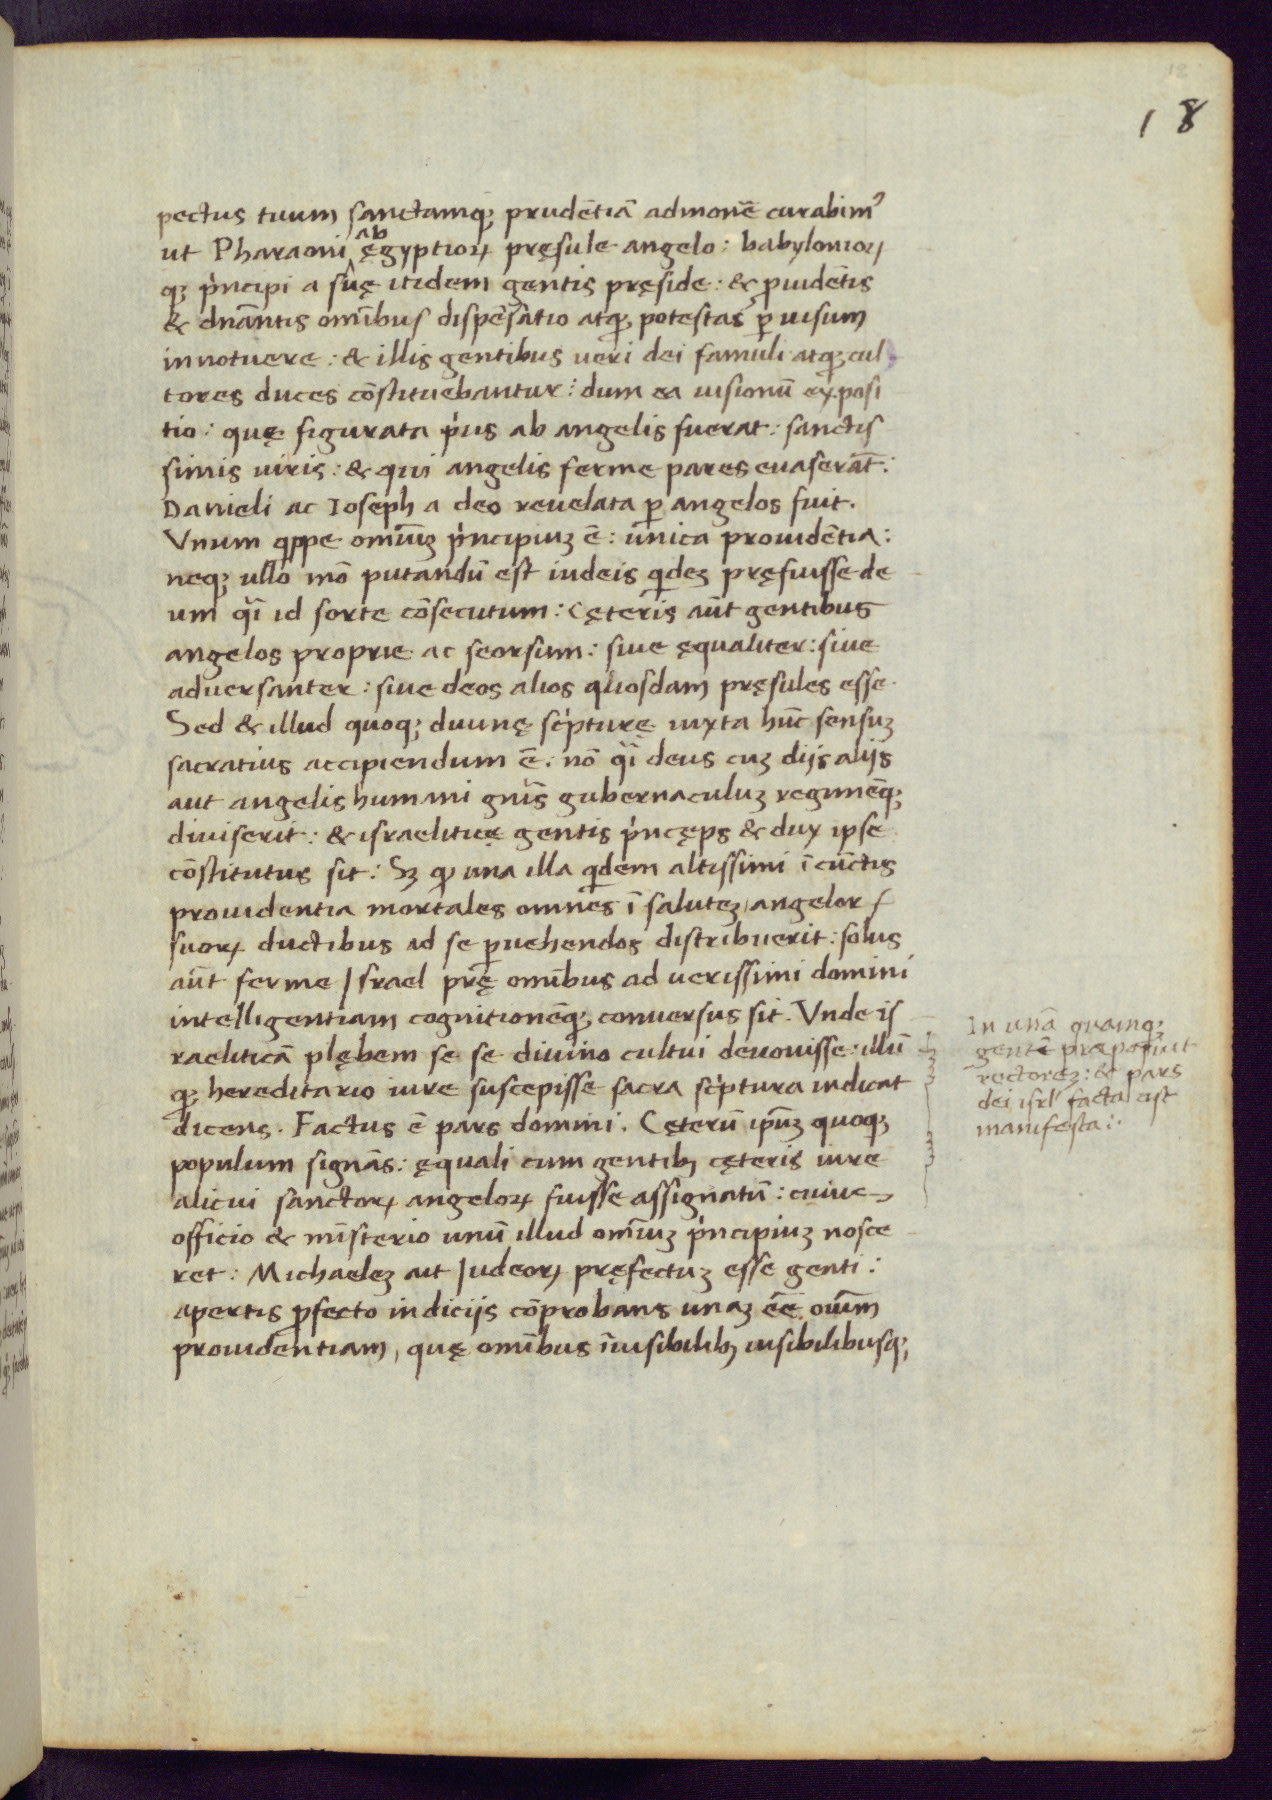 18
pectus tuum sanctamq; prudētiā admonē curabim᾽
ut Pharaoni ab ęgyptioꝝ pręsule angelo: babylonioꝝ
q; p̍ncipi a suę itidem gentis pręside: & ꝓuidētis
& dn̄antis omībus dispēsatio atq; potestas ꝑ uisum
innotuere: & illis gentibus ueri dei famuli atq; cul-
tores duces cōstituebantur: dum ea uisionū exposi
tio: quę figurata p̍us ab angelis fuerat: sanctis
simis uiris: & qui angelis ferme pares euaserāt:
Danieli ac Ioseph a deo reuelata ꝑ angelos fuit.
Vnum q̍ppe omiūꝫ p̍ncipiuꝫ ē: unica prouidētia:
neq; ullo mō putandū est iudeis q̍deꝫ pręfuisse de
um q̄i id sorte cōsecutum: Cęteris aūt gentibus
angelos proprie ac seorsum: siue ęqualiter: siue
aduersanter: siue deos alios quosdam pręsules esse.
Sed & illud quoq; diuinę sc̍pturę iuxta hūc sensuꝫ
sacratius accipiendum ē. nō q̄i deus cuꝫ dijs alijs
aut angelis humani gn̄is gubernaculuꝫ regimēq;
diuiserit: & israeliticę gentis p̍ncęps & dux ipse
cōstitutus sit: Sꝫ ꝙ una illa q̍dem altissimi ī cūctis
prouidentia mortales omnes ī saluteꝫ angelor
suoꝝ ductibus ad se ꝑuehendos distribuerit: solus
aūt ferme Israel prę omībus ad uerissimi domini
intelligentiam cognitionēq; conuersus sit. Vnde is
raeliticā plębem se se diuino cultui deuouisse: illū
q; hereditario iure suscepisse sacra sc̍ptura indicat
dicens. Factus ē pars domini. Cęterū ip̄uꝫ quoq;
populum signās: ęquali cum gentibꝫ cęteris iure
alicui sanctoꝝ angeloꝝ fuisse assignatū: cuius
officio & mīsterio unū illud omiūꝫ p̍ncipiuꝫ nosce
ret: Michaeleꝫ ait Iudeoꝝ pręfectuꝫ esse genti:
apertis ꝓfecto indicijs cōprobans unaꝫ eē oiūm
prouidentiam, quę omībus īuisibilibꝫ uisibilibusq;
In unā quamq;
gentē præposuit
rectoreꝫ: & pars
dei isrl' facta est
manifesta:.